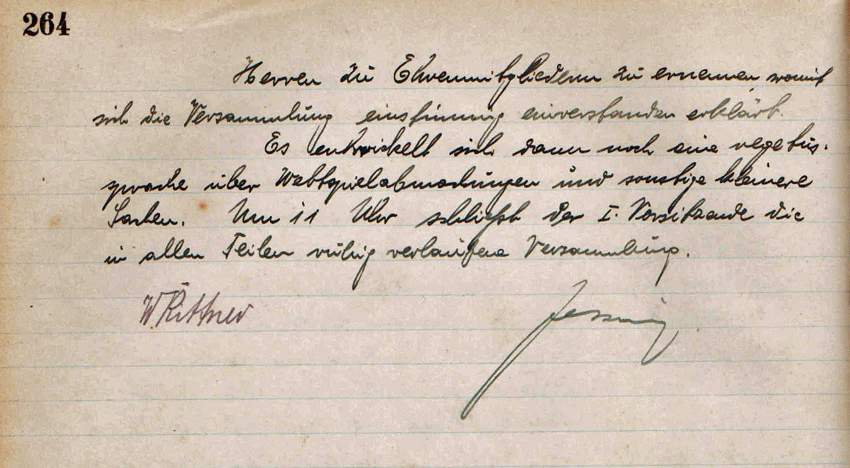 264
Herren zu Ehrenmitgliedern zu ernennen womit
sich die Versammlung einstimmig einverstanden erklärt.
Es entwickelt sich dann noch eine rege Aus-
sprache über Wettspielabmachungen und sonstige kleinere
Sachen. Um 11 Uhr schließt der I. Vorsitzende die
in allen Teilen ruhig verlaufene Versammlung.
W. Rittner